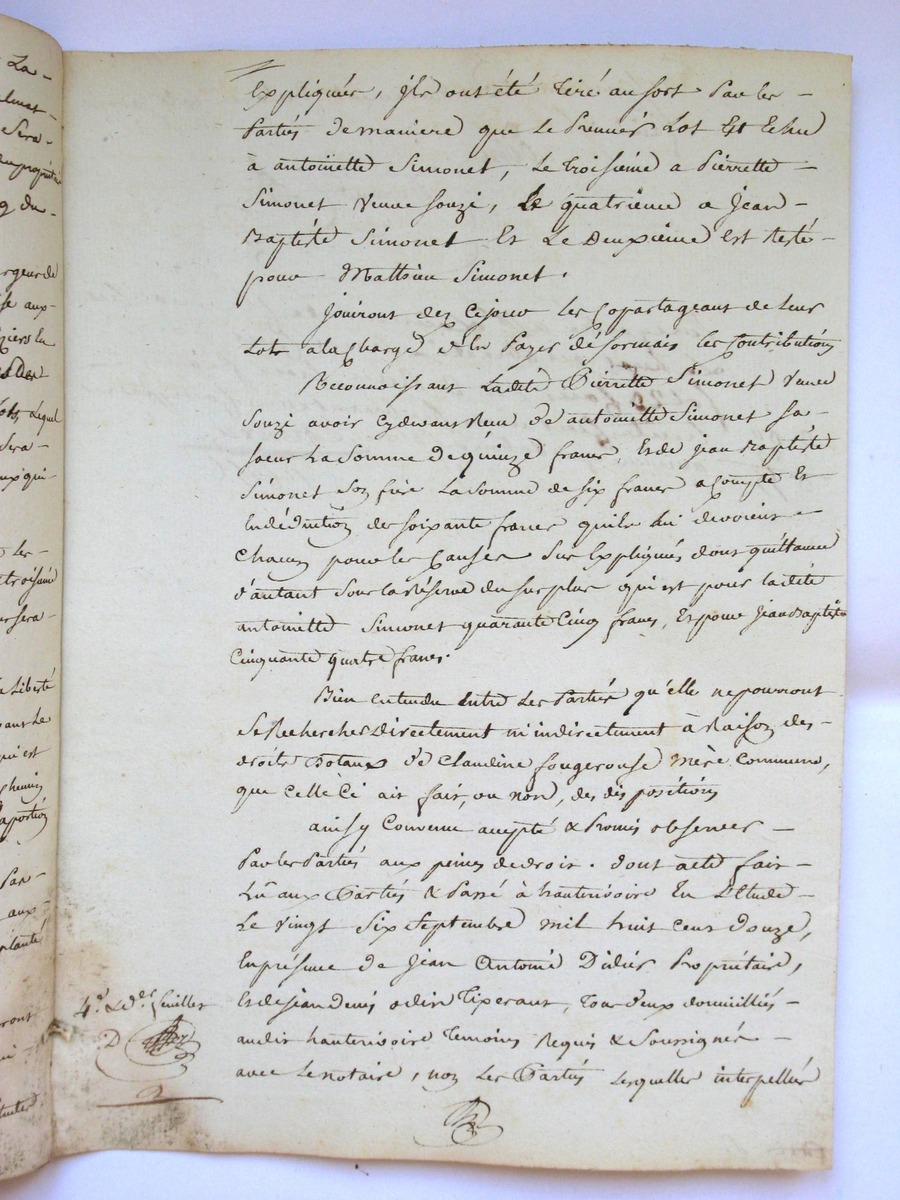 Expliquées, ils ont été tiré au sort Par les -
Partiés de maniere que Le Premier Lot Est Echu
à antoinette Simonet, Le troisieme a Pierrette -
Simonet Veuve Souzi, Le quatrieme a Jean -
Baptiste Simonet Et Le Deuxième Est Resté -
pour Mathieu Simonet.
Jouiront dez Cejour Les Copartageant de leur
Lots ala Charge d'En Payer désormais les Contributions
Reconnaissant Ladite Pierrette Simonet Veuve
Souzi avoir Cydevant Reçu d'antoinette Simonet sa -
soeur La Somme de quinze francs, Et de Jean Baptiste
Simonet Son frère La Somme de six francs acompte Et
En déduction de soixante francs qu'ils Lui devoient -
Chacun pour les Causes Sus Expliqués dont quittance
d'autant Sous la Réserve du surplus qui est pour ladite
antoinette Simonet quarante Cinq francs, Et pour Jean Baptiste
Cinquante quatre francs.
Bien entendu Entre Les Partiés qu'elle ne pourront
Se Rechercher Directement ni indirectement à Raison des -
droits Dotaux de Claudine fougerouse Mère Commune,
que Celle Ci ait fait, ou non, des dispositions
ainsy Convenu accepté & Promis observer -
Par les Partiés aux peines de droit. dont acte fait -
Lû aux Partiés & Passé à hauterivoire En L'Etude -
Le vingt Six Septembre mil huit Cent Douze,
En présence de Jean Antoine Didier Propriétaire,
Et de jean denis odin Tixerant, Tous deux domicilliés -
audit hauterivoire Temoins Requis & Soussignés -
avec Le notaire, non Les Partiés Lesquelles interpellées
4.e & d.er feuillet